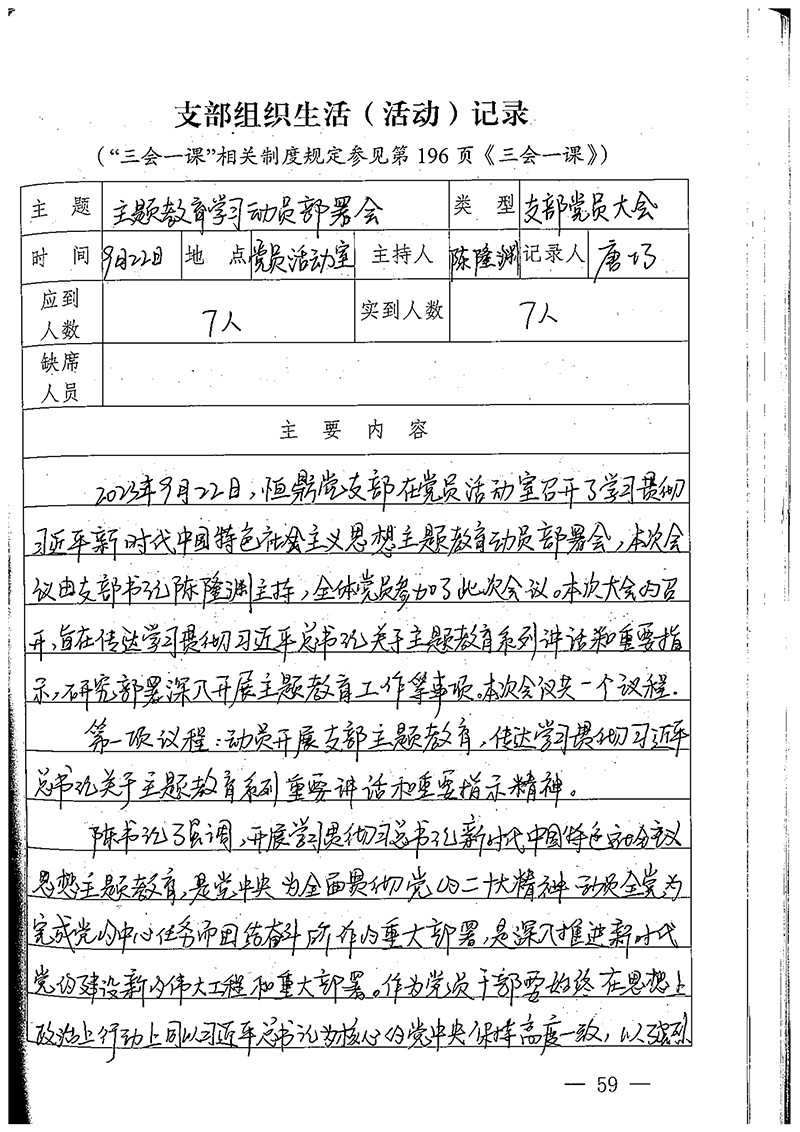 支部组织生活（活动）记录
（“三会一课”相关制度规定参见第 196 页《三会一课》）
主 题 主题教育学习动员部署会 类 型 支部党员大会
时 间 9月22日 地 点 党员活动室 主持人 陈隆渊 记录人 唐巧
应到人数 7人 实到人数 7人
缺席人员
主 要 内 容
2023年9月22日，恒鼎党支部在党员活动室召开了学习贯彻
习近平新时代中国特色社会主义思想主题教育动员部署会，本次会
议由支部书记陈隆渊主持，全体党员参加了此次会议。本次大会的召
开，旨在传达学习贯彻习近平总书记关于主题教育系列讲话和重要指
示，研究部署深入开展主题教育工作等事项。本次会议共一个议程.
第一项议程：动员开展支部主题教育，传达学习贯彻习近平
总书记关于主题教育系列重要讲话和重要指示精神。
陈书记强调，开展学习贯彻习总书记新时代中国特色社会主义
思想主题教育，是党中央为全面贯彻党的二十大精神动员全党为
完成党的中心任务而团结奋斗所作的重大部署，是深入推进新时代
党的建设新的伟大工程和重大部署。作为党员干部要始终在思想上
政治上行动上同以习近平总书记为核心的党中央保持高度一致，以强烈
— 59 —